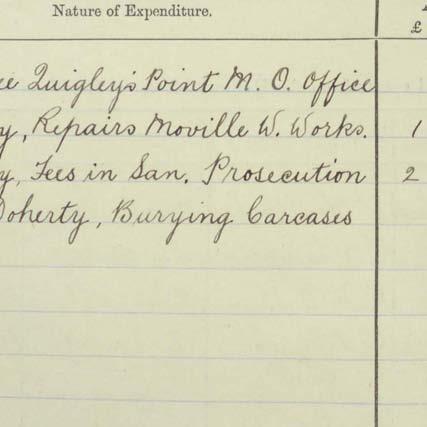 Nature of Expenditure.
£
Quigley's Point M. O. Office
Repairs Moville W. Works. 1
Fees in San. Prosecution 2
Doherty, Burying Carcases